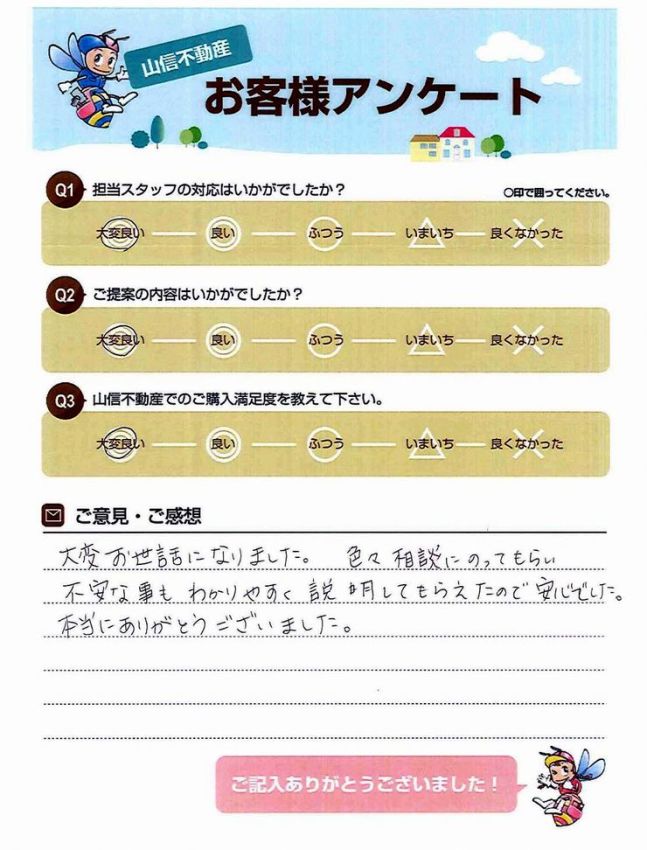 山信不動産
お客様アンケート
Q1 担当スタッフの対応はいかがでしたか？ ○印で囲ってください。
大変良い 良い ふつう いまいち 良くなかった
Q2 ご提案の内容はいかがでしたか？
大変良い 良い ふつう いまいち 良くなかった
Q3 山信不動産でのご購入満足度を教えて下さい。
大変良い 良い ふつう いまいち 良くなかった
ご意見・ご感想
大変お世話になりました。 色々相談にのってもらい
不安な事もわかりやすく説明してもらえたので安心でした。
本当にありがとうございました。
ご記入ありがとうございました！